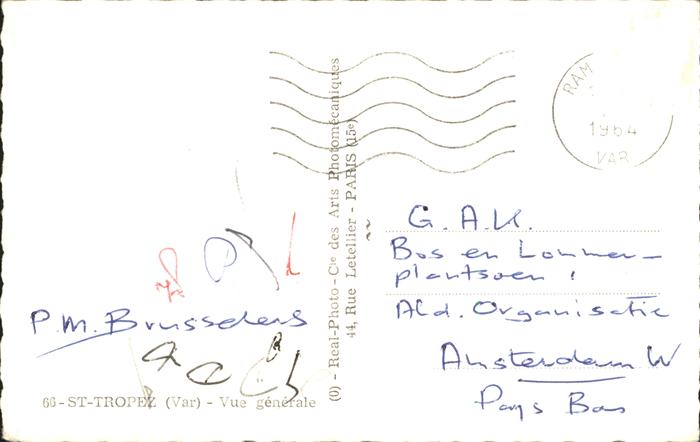 RAM
1964
VAR
(O) - Real-Photo-Cie des Arts Photomécaniques
44, Rue Letellier - PARIS (15e)
G.A.K.
Bos en Lommer-
plantsoen 1
Afd. Organisatie
Amsterdam W
Pays Bas
P.M. Brusselers
66 - ST-TROPEZ (Var) - Vue générale